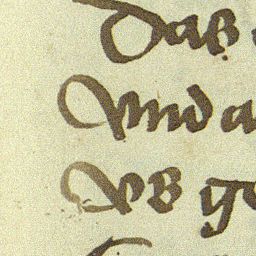 Das
Vnd a
Vß ge